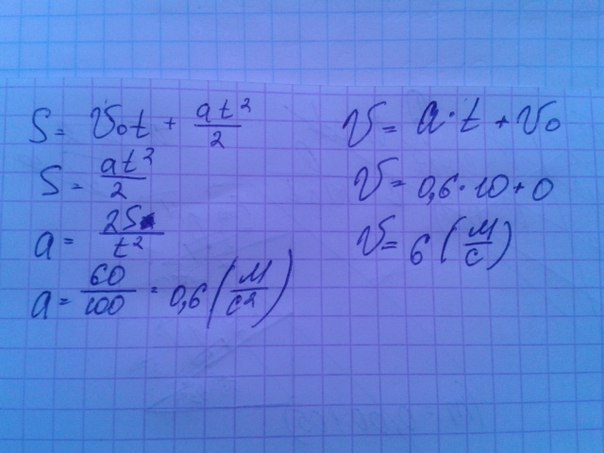 S = V₀t + at²/2
S = at²/2
a = 2S/t²
a = 60/100 = 0,6 (м/с²)
V = a·t + V₀
V = 0,6·10+0
V = 6 (м/с)